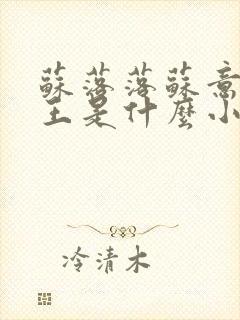 蘇落落蘇意
主是什麼小
冷清木